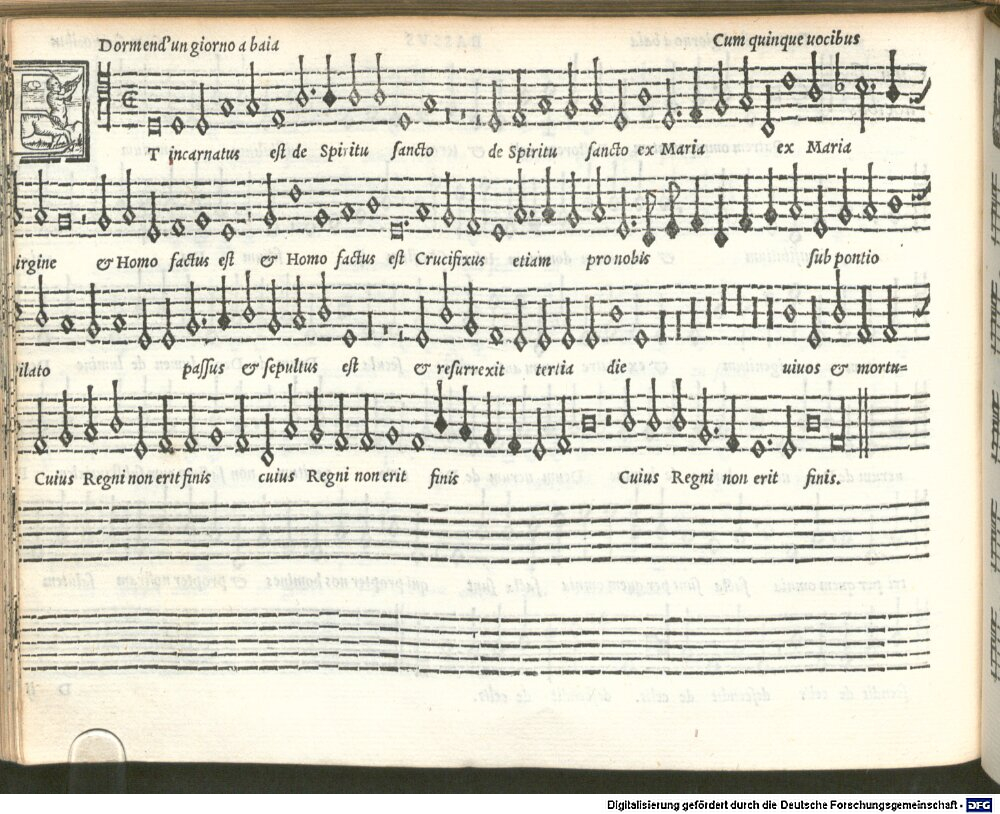 Dormend'un giorno a baia Cum quinque uocibus
ET incarnatus est de Spiritu sancto de Spiritu sancto ex Maria ex Maria
irgine & Homo factus est & Homo factus est Crucifixus etiam pro nobis sub pontio
ilato passus & sepultus est & resurrexit tertia die uiuos & mortu=
Cuius Regni non erit finis cuius Regni non erit finis Cuius Regni non erit finis.
Digitalisierung gefördert durch die Deutsche Forschungsgemeinschaft - DFG